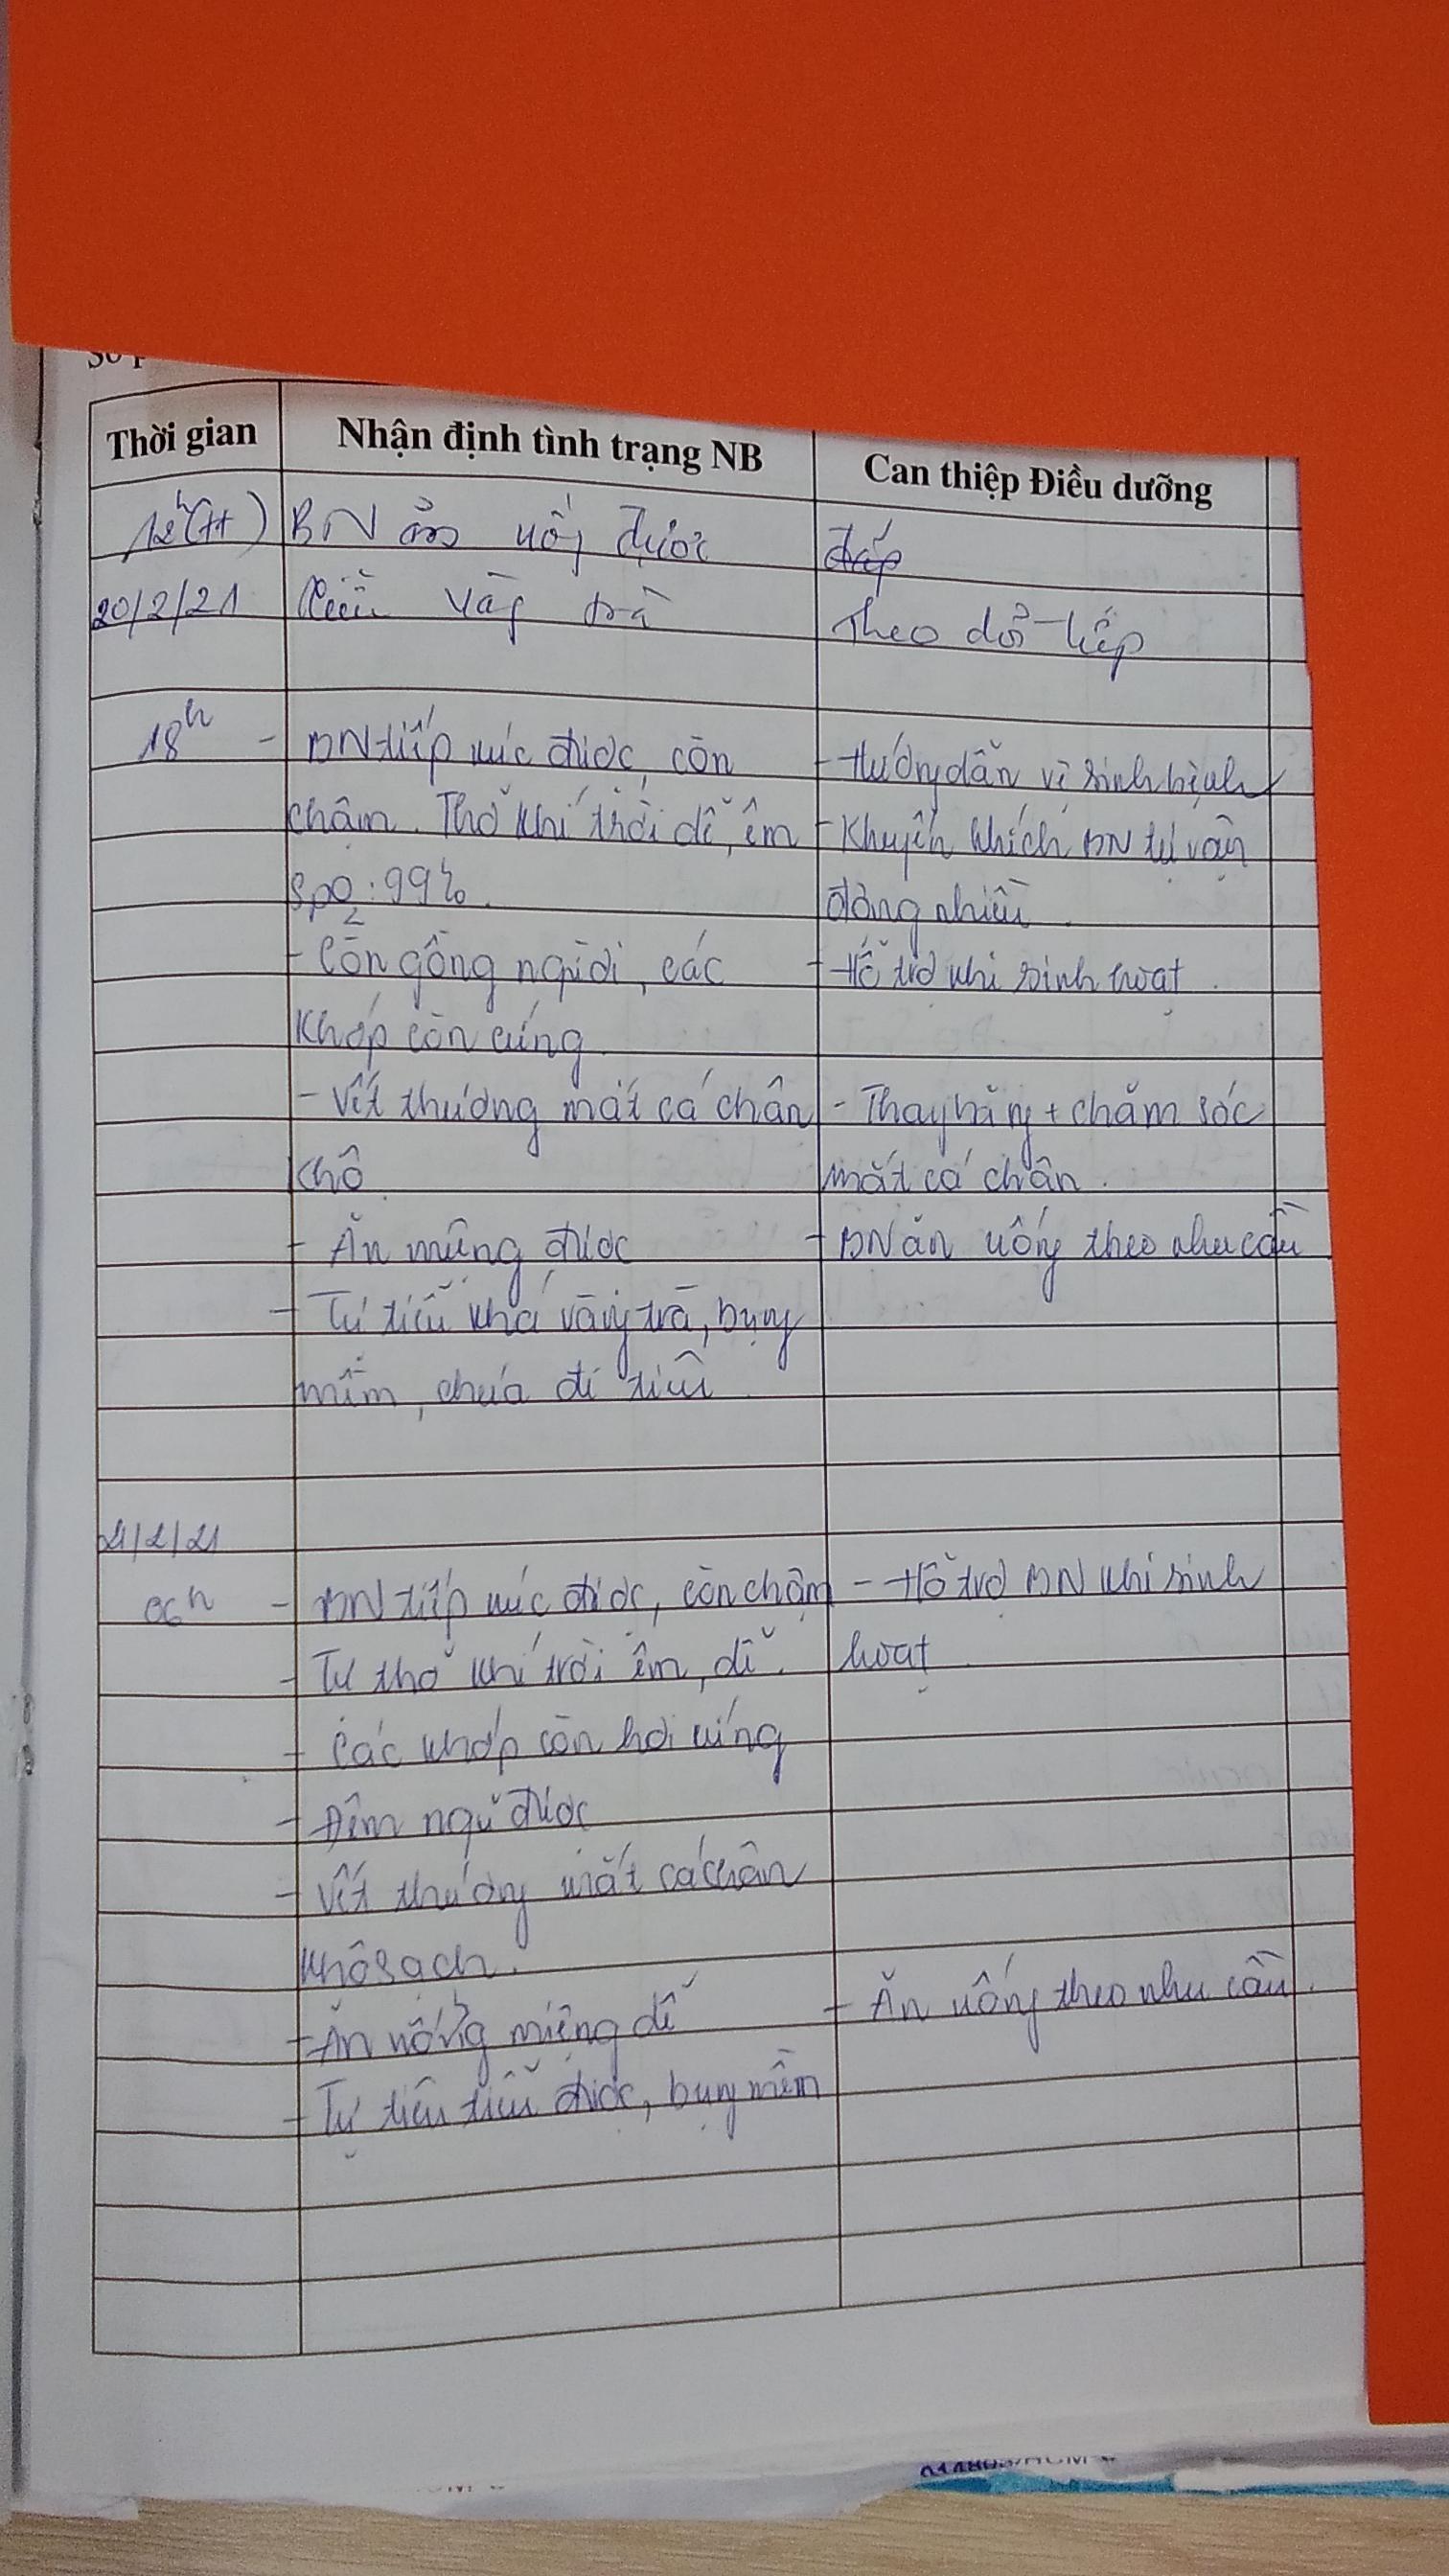 Thời gian Nhận định tình trạng NB Can thiệp Điều dưỡng
12h(tt) BN ăn uống được
20/2/21 tiểu vàng trà Theo dõi tiếp
18h - BN tiếp xúc được, còn - Hướng dẫn vệ sinh bệnh
chậm. Thở khí trời dễ, êm - Khuyến khích BN tự vận
SpO2: 99%. động nhiều.
- Còn gồng người, các - Hỗ trợ khi sinh hoạt.
Khớp còn cứng
- Vết thương mắt cá chân - Thay băng + chăm sóc
khô mắt cá chân.
- Ăn miệng được - BN ăn uống theo nhu cầu
- Tự tiểu khá vàng trà, bụng
mềm, chưa đi tiêu.
21/2/21
06h - BN tiếp xúc được, còn chậm - Hỗ trợ BN khi sinh
- Tự thở khí trời êm, dễ. hoạt.
- Các khớp còn hơi cứng
- Đêm ngủ được
- Vết thương mắt cá chân
khô sạch.
- Ăn uống miệng dễ - Ăn uống theo nhu cầu.
- Tự tiêu tiểu được, bụng mềm